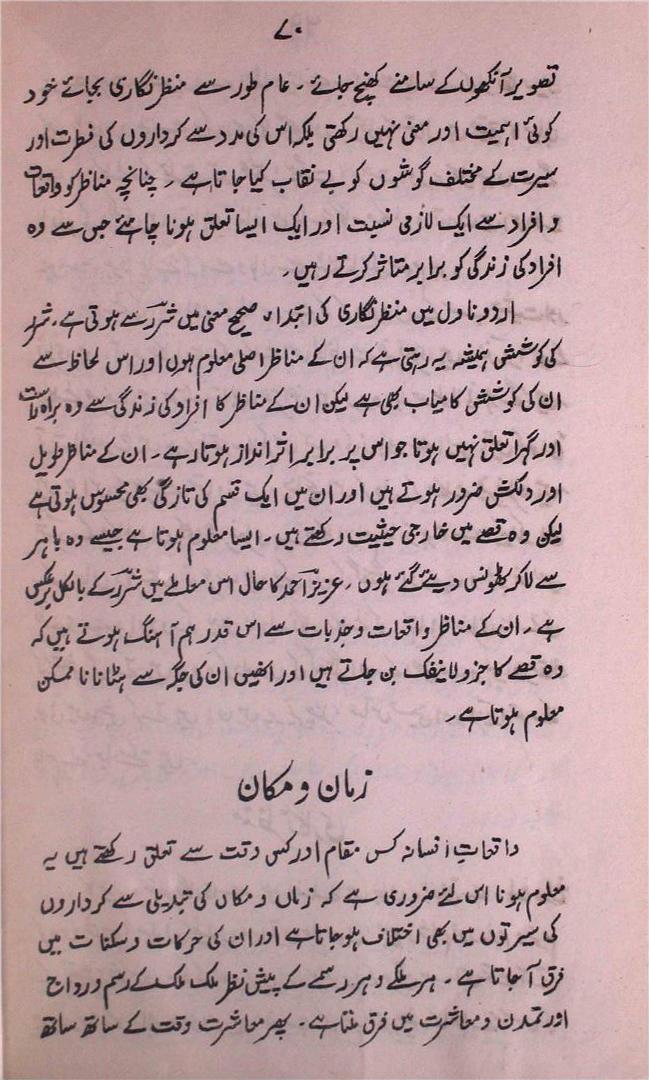 ۷۰
تصویر آنکھوں کے سامنے کھنچ جائے۔ عام طور سے منظر نگاری بجائے خود
کوئی اہمیت اور معنی نہیں رکھتی بلکہ اس کی مدد سے کرداروں کی فطرت اور
سیرت کے مختلف گوشوں کو بے نقاب کیا جاتا ہے۔ چنانچہ مناظر کو واقعات
و افراد سے ایک لازمی نسبت اور ایک ایسا تعلق ہونا چاہئے جس سے وہ
افراد کی زندگی کو برابر متاثر کرتے رہیں۔
اردو ناول میں منظر نگاری کی ابتداء صحیح معنی میں شررؔ سے ہوتی ہے۔ شررؔ
کی کوشش ہمیشہ یہ رہتی ہے کہ ان کے مناظر اصلی معلوم ہوں اور اس لحاظ سے
ان کی کوشش کامیاب بھی ہے لیکن ان کے مناظر کا افراد کی زندگی سے وہ براہ راست
اور گہرا تعلق نہیں ہوتا جو اس پر برابر اثر انداز ہوتا رہے۔ ان کے مناظر طویل
اور دلکش ضرور ہوتے ہیں اور ان میں ایک قسم کی تازگی بھی محسوس ہوتی ہے
لیکن وہ قصے میں خارجی حیثیت رکھتے ہیں۔ ایسا معلوم ہوتا ہے جیسے وہ باہر
سے لا کر ٹھونس دیئے گئے ہوں۔ عزیز احمد کا حال اس معاملے میں شررؔ کے بالکل برعکس
ہے۔ ان کے مناظر واقعات و جذبات سے اس قدر ہم آہنگ ہوتے ہیں کہ
وہ قصے کا جزو لاینفک بن جاتے ہیں اور انھیں ان کی جگہ سے ہٹانا ناممکن
معلوم ہوتا ہے۔
زمان و مکان
واقعاتِ افسانہ کس مقام اور کس وقت سے تعلق رکھتے ہیں یہ
معلوم ہونا اس لئے ضروری ہے کہ زماں و مکاں کی تبدیلی سے کرداروں
کی سیرتوں میں بھی اختلاف ہو جاتا ہے اور ان کی حرکات و سکنات میں
فرق آ جاتا ہے۔ ہر ملکے و ہر رسمے کے پیش نظر ملک ملک کے رسم و رواج
اور تمدن و معاشرت میں فرق ملتا ہے۔ پھر معاشرت وقت کے ساتھ ساتھ